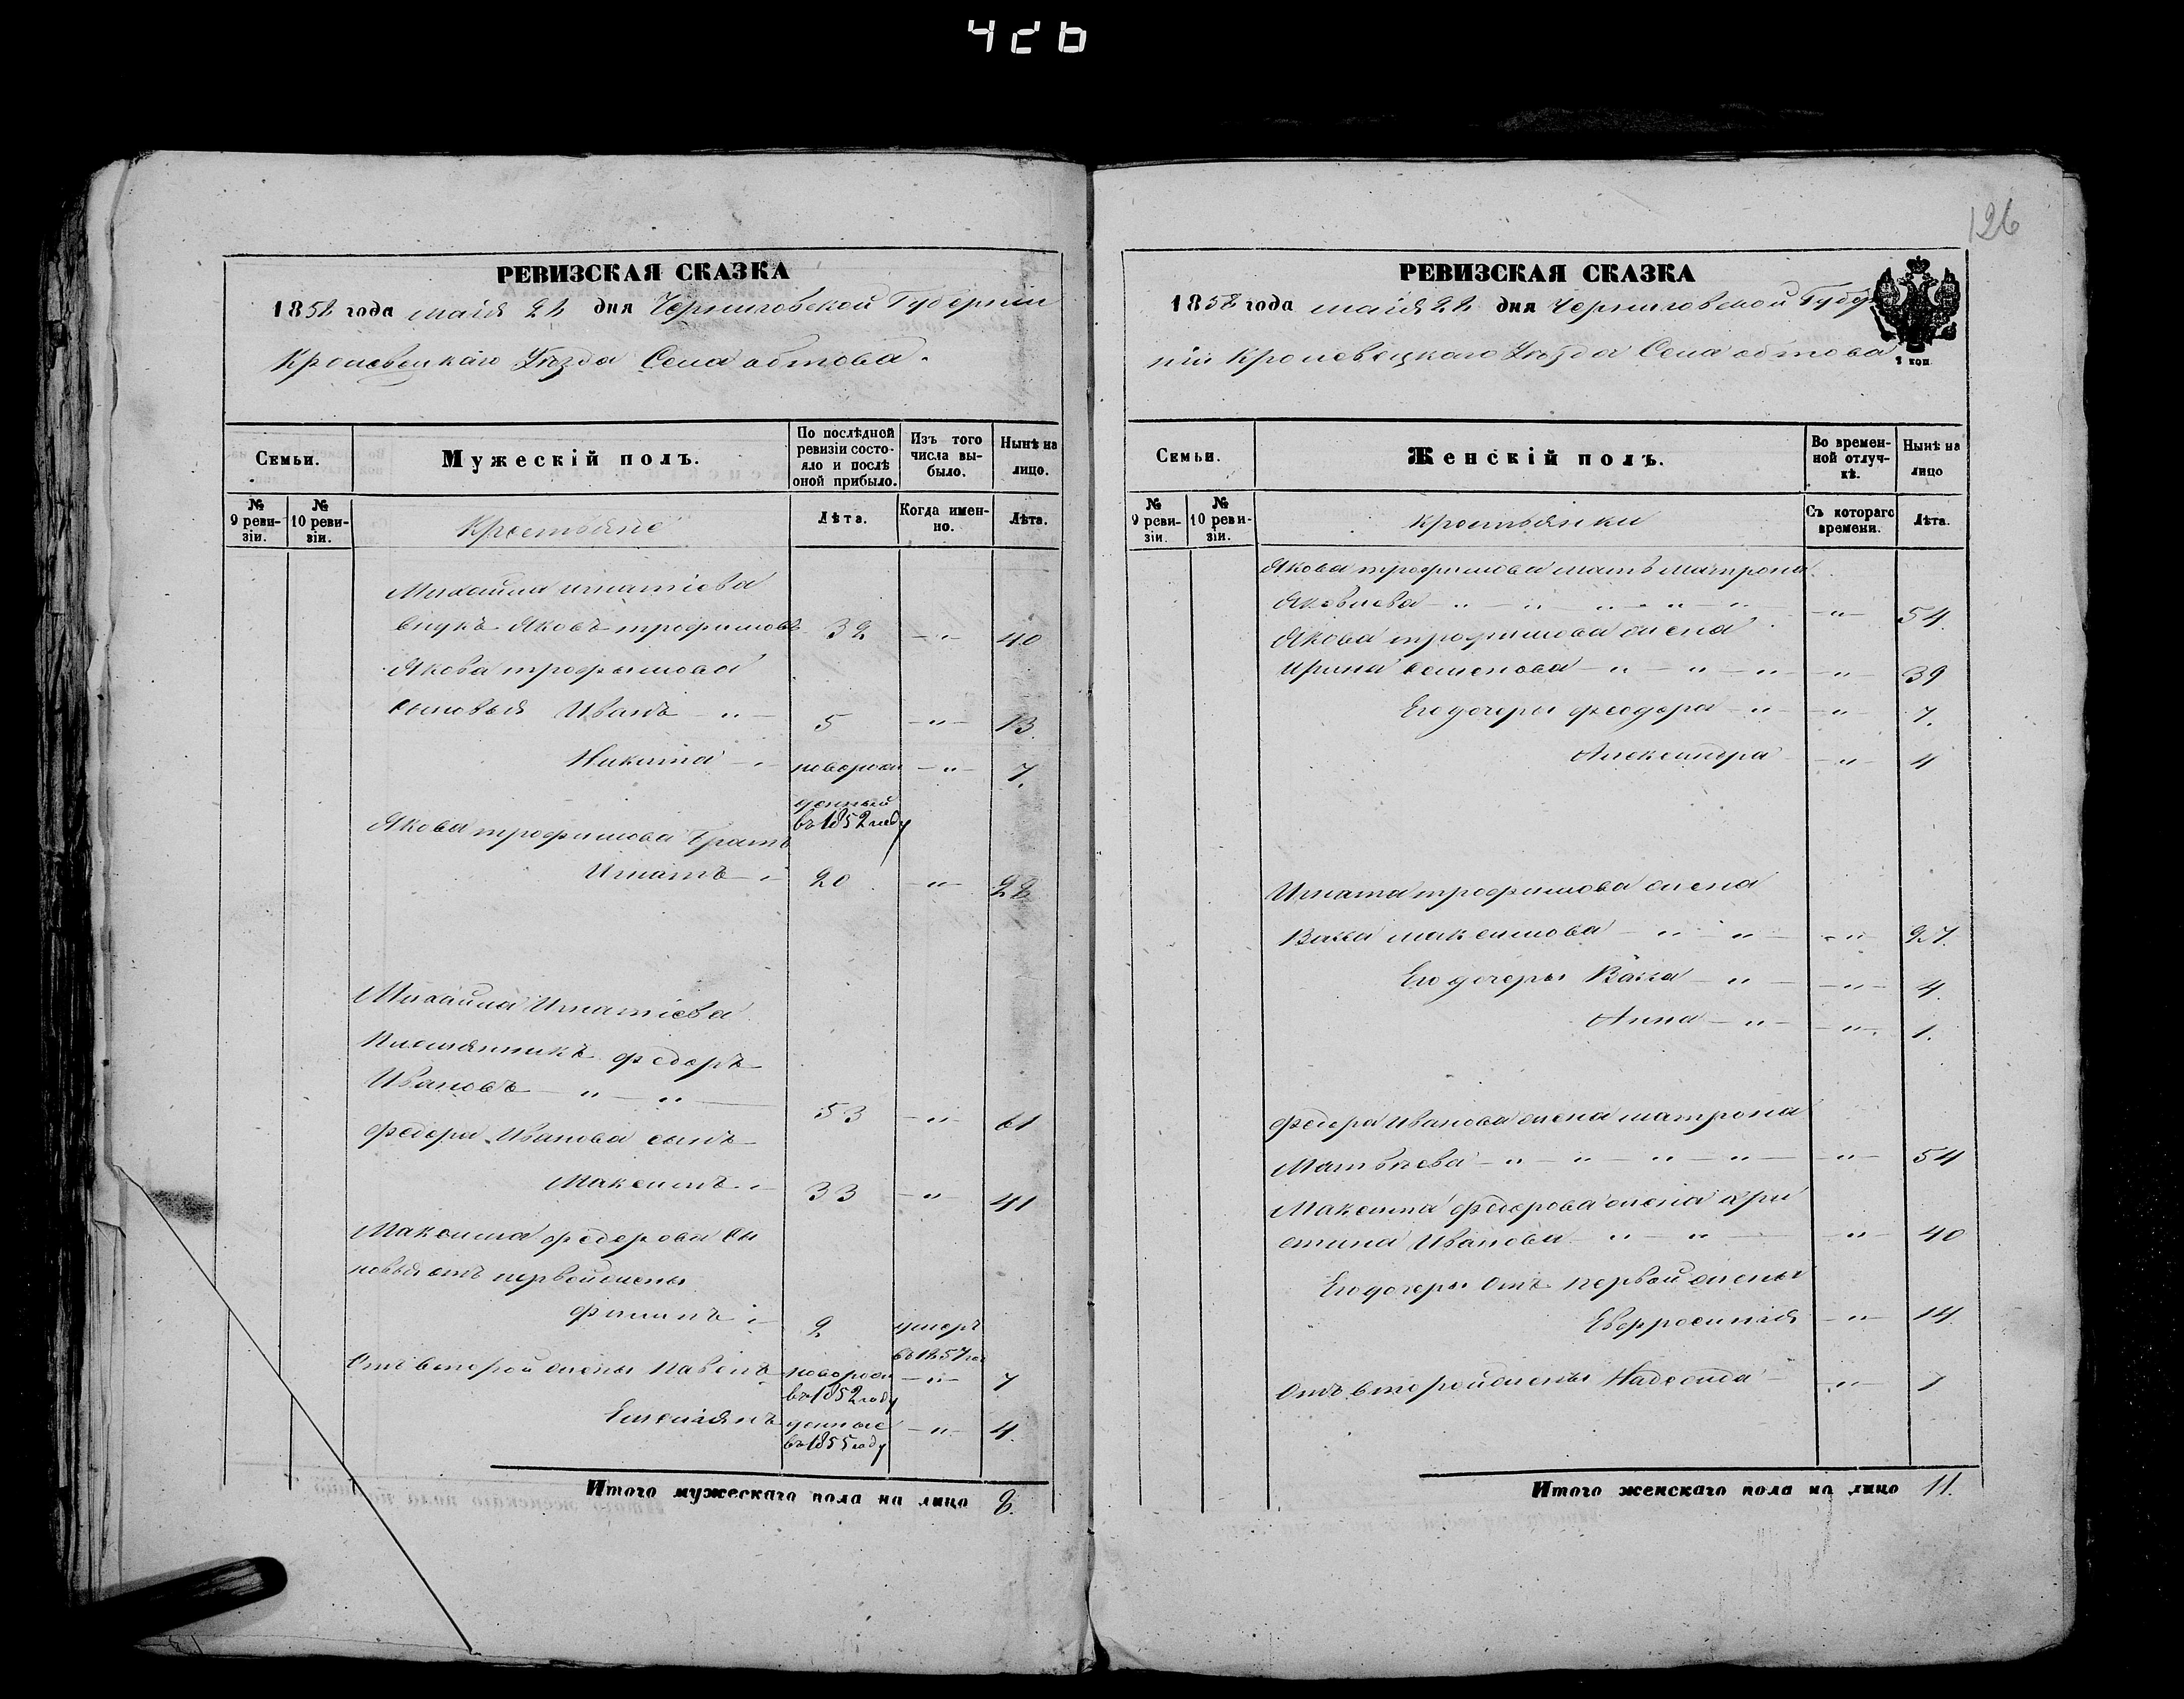 426
РЕВИЗСКАЯ СКАЗКА
1858 года маія 28 дня Черниговской Губерніи
Кролевецкаго Уѣзда Села обтова.
Семьи.
Мужескій полъ.
По послѣдней ревизіи состояло и послѣ оной прибыло.
Изъ того числа выбыло.
Нынѣ на лицо.
№ 9 ревизіи.
№ 10 ревизіи.
Крестьяне
Лѣта.
Когда именно.
Лѣта.
Михаила игнатіева
внукъ Яковъ трофимовъ 32 — " — 40
Якова трофимова
сыновья Иванъ — " — 5 — " — 13.
Никита — " новорож — " — 7.
денный
въ 1852 году
Якова трофимова братъ
Игнатъ — " 20 — " — 28
Михаила Игнатіева
Племянникъ федоръ
Ивановъ — " — " — 53 — " — 61
федора Иванова сынъ
Максимъ — " 33 — " — 41
Максима федорова сы
новья отъ первой жены
филипъ — " 2 умеръ
въ 1857 го
Отъ второй жены Павелъ новорож — " — 7
въ 1852 году
Емельянъ денные — " — 4.
въ 1855 году
Итого мужескаго пола на лицо 8.
126
РЕВИЗСКАЯ СКАЗКА
1858 года маія 28 дня Черниговской Губер
ніи Кролевецкаго Уѣзда Села обтова
Семьи.
Женскій полъ.
Во временной отлучкѣ.
Нынѣ на лицо
№ 9 ревизіи.
№ 10 ревизіи.
крестьянки
Съ котораго времени.
Лѣта.
Якова трофимова мать матрона
Яковлева — " — " — " — " — " — " — 54.
Якова трофимова жена
Ирина Семенова — " — " — " — " — 39
Его дочеры феодора — " — " — 7.
Александра — " — 4
Игната трофимова жена
Васса максимова — " — " — " — 27.
Его дочеры Васса — " — " — 4.
Анна — " — " — 1.
федора Иванова жена матрона
Матвѣева — " — " — " — " — " — 54
Максима федорова жена хри
стина Иванова — " — " — " — 40
Его дочеры отъ первой жены
Евфросинія — " — 14.
Отъ второй жены Надежда — " — 1
Итого женскаго пола на лицо 11.